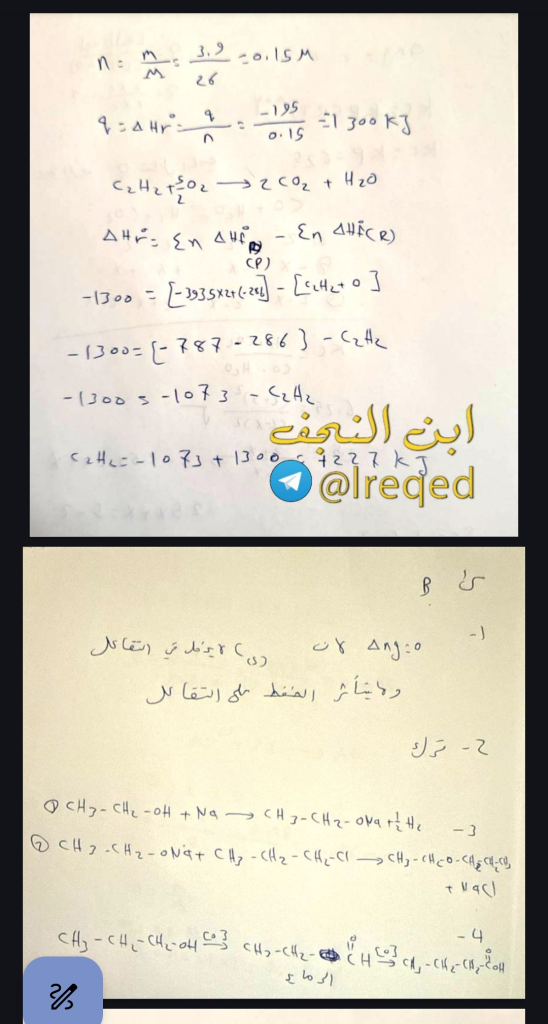 n = m/M = 3.9/26 = 0.15 M
q = ΔHr° = q/n = -195/0.15 = -1300 KJ
C2H2 + 5/2 O2 → 2CO2 + H2O
ΔHr° = Σn ΔHf°(P) - Σn ΔHf°(R)
-1300 = [-393.5×2+(-286)] - [C2H2 + 0]
-1300 = [-787 - 286] - C2H2
-1300 = -1073 - C2H2
ابن النجف
C2H2 = -1073 + 1300 = +227 KJ
@Ireqed
B س
1- Δng=0 لان C(s) لا يدخل في التفاعل
ولا يتأثر الضغط على التفاعل
2- ترك
3- ① CH3-CH2-OH + Na → CH3-CH2-ONa + 1/2 H2
② CH3-CH2-ONa + CH3-CH2-CH2-Cl → CH3-CH2-O-CH2-CH2-CH3
+ NaCl
4- CH3-CH2-CH2-OH [O]→ CH3-CH2-CH=O [O]→ CH3-CH2-CH2-COH=O